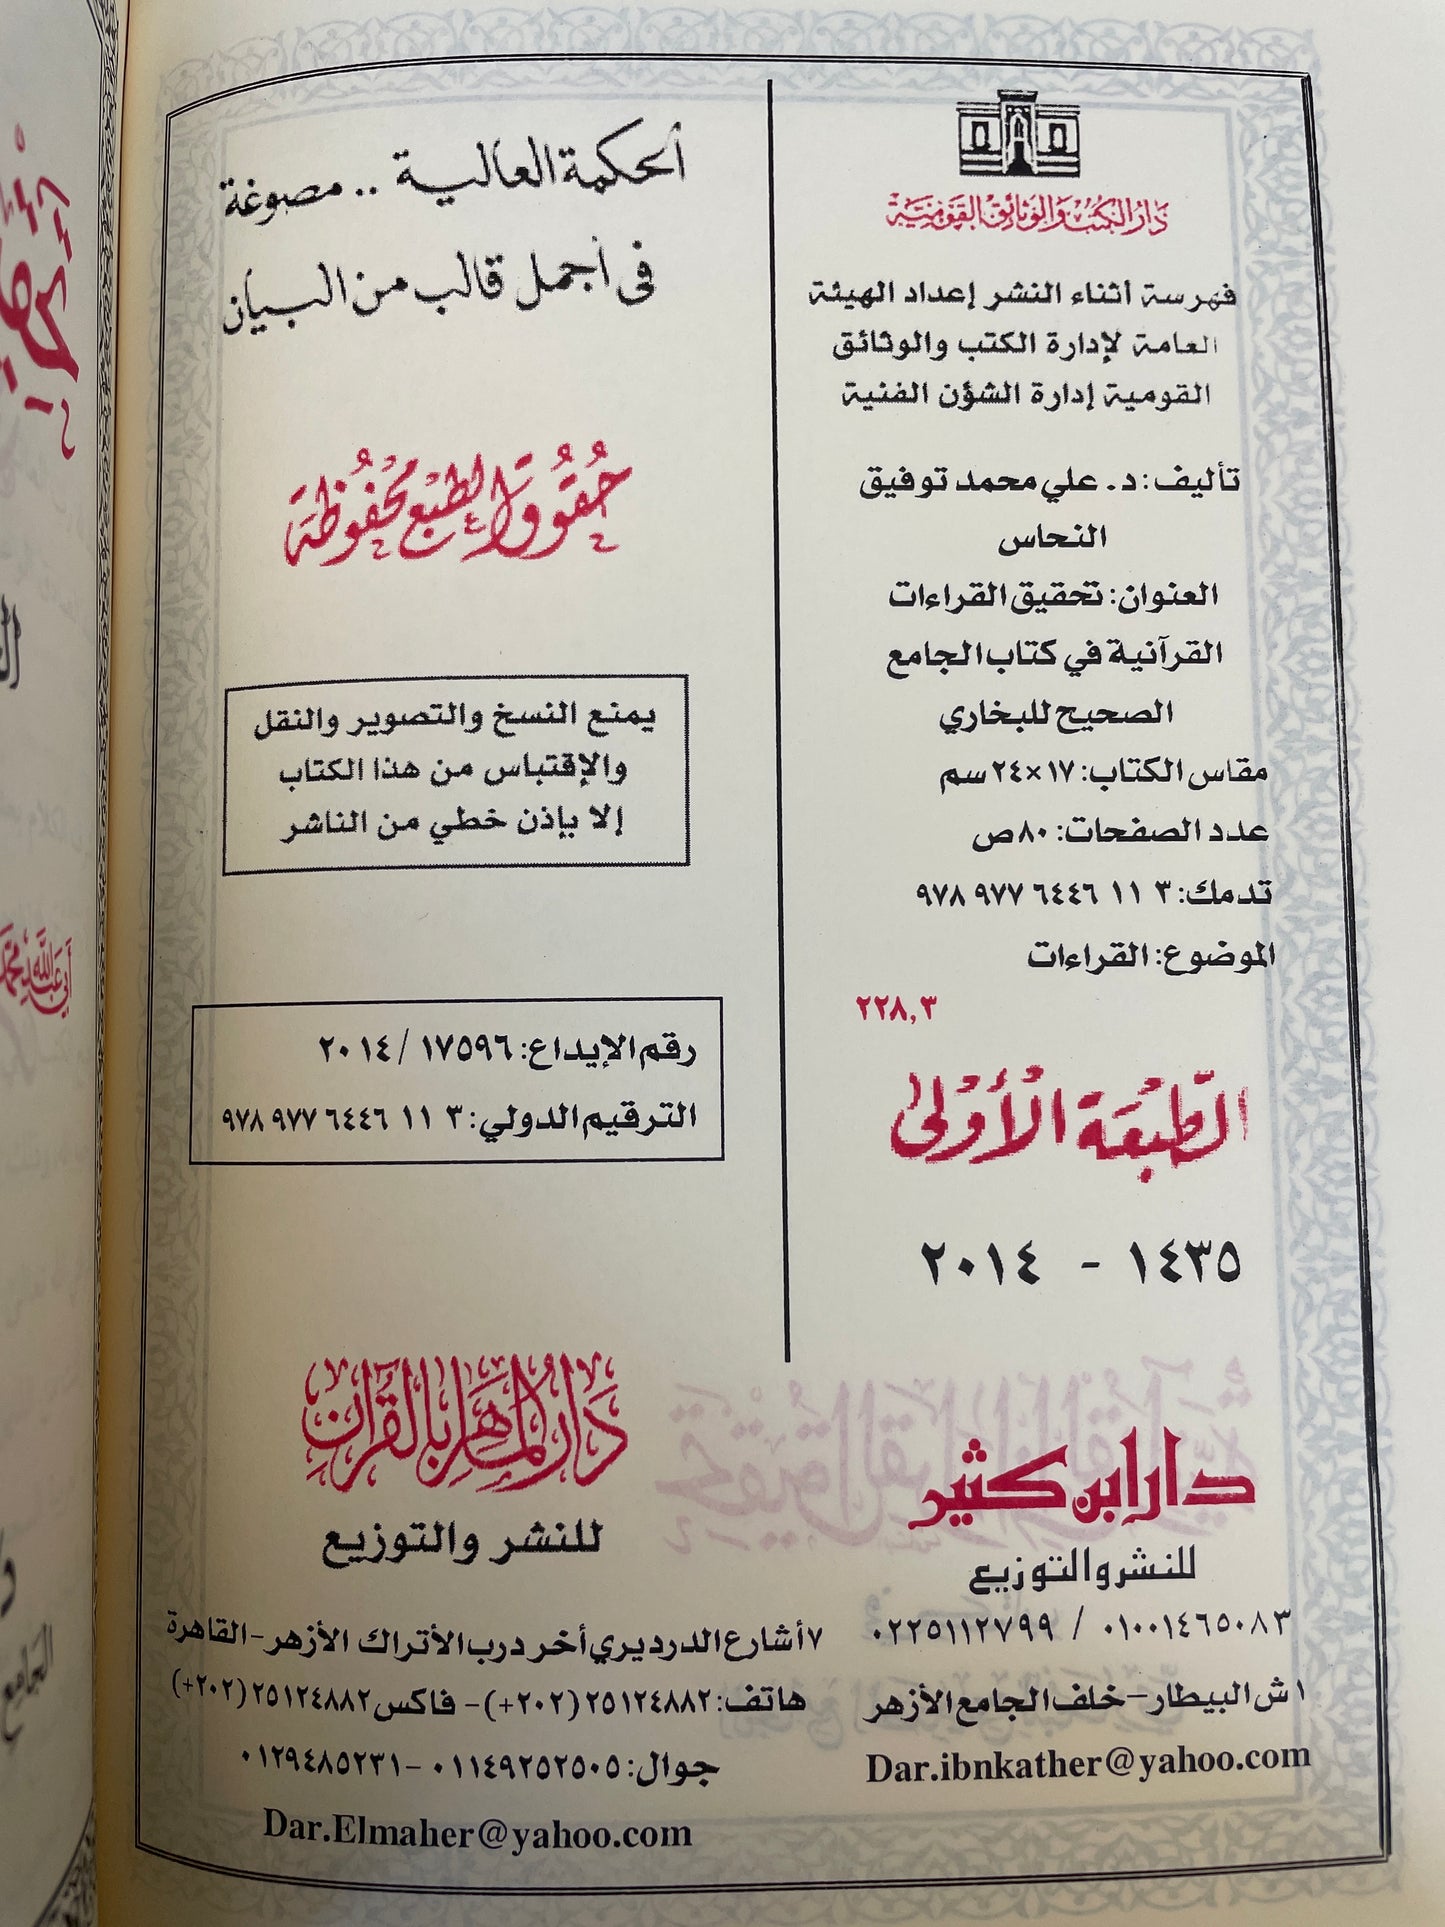 دار الكتب والوثائق القومية
فهرسة أثناء النشر إعداد الهيئة
العامة لإدارة الكتب والوثائق
القومية إدارة الشؤن الفنية
تأليف: د. علي محمد توفيق
النحاس
العنوان: تحقيق القراءات
القرآنية في كتاب الجامع
الصحيح للبخاري
مقاس الكتاب: ١٧×٢٤ سم
عدد الصفحات: ٨٠ ص
تدمك: ٣ ١١ ٦٤٤٦ ٩٧٧ ٩٧٨
الموضوع: القراءات
٢٢٨,٣
الطَّبْعَة الْأُوْلىٰ
١٤٣٥ - ٢٠١٤
دار ابن كثير
للنشر والتوزيع
٠١٠٠١٤٦٥٠٨٣ / ٠٢٢٥١١٢٧٩٩
١ ش البيطار - خلف الجامع الأزهر
Dar.ibnkather@yahoo.com
الحكمة العالية .. مصوغة
فى أجمل قالب من البيان
حُقُوقُ الطَّبْعِ مَحْفُوظَة
يمنع النسخ والتصوير والنقل
والإقتباس من هذا الكتاب
إلا بإذن خطي من الناشر
رقم الإيداع: ١٧٥٩٦ / ٢٠١٤
الترقيم الدولي: ٣ ١١ ٦٤٤٦ ٩٧٧ ٩٧٨
دَارُ الْمَاهِرِ بِالْقُرْآنِ
للنشر والتوزيع
٧أ شارع الدرديري أخر درب الأتراك الأزهر - القاهرة
هاتف: ٢٥١٢٤٨٨٢ (٢٠٢+) - فاكس ٢٥١٢٤٨٨٢ (٢٠٢+)
جوال: ٠١١٤٩٢٥٢٥٠٥ - ٠١٢٩٤٨٥٢٣١
Dar.Elmaher@yahoo.com